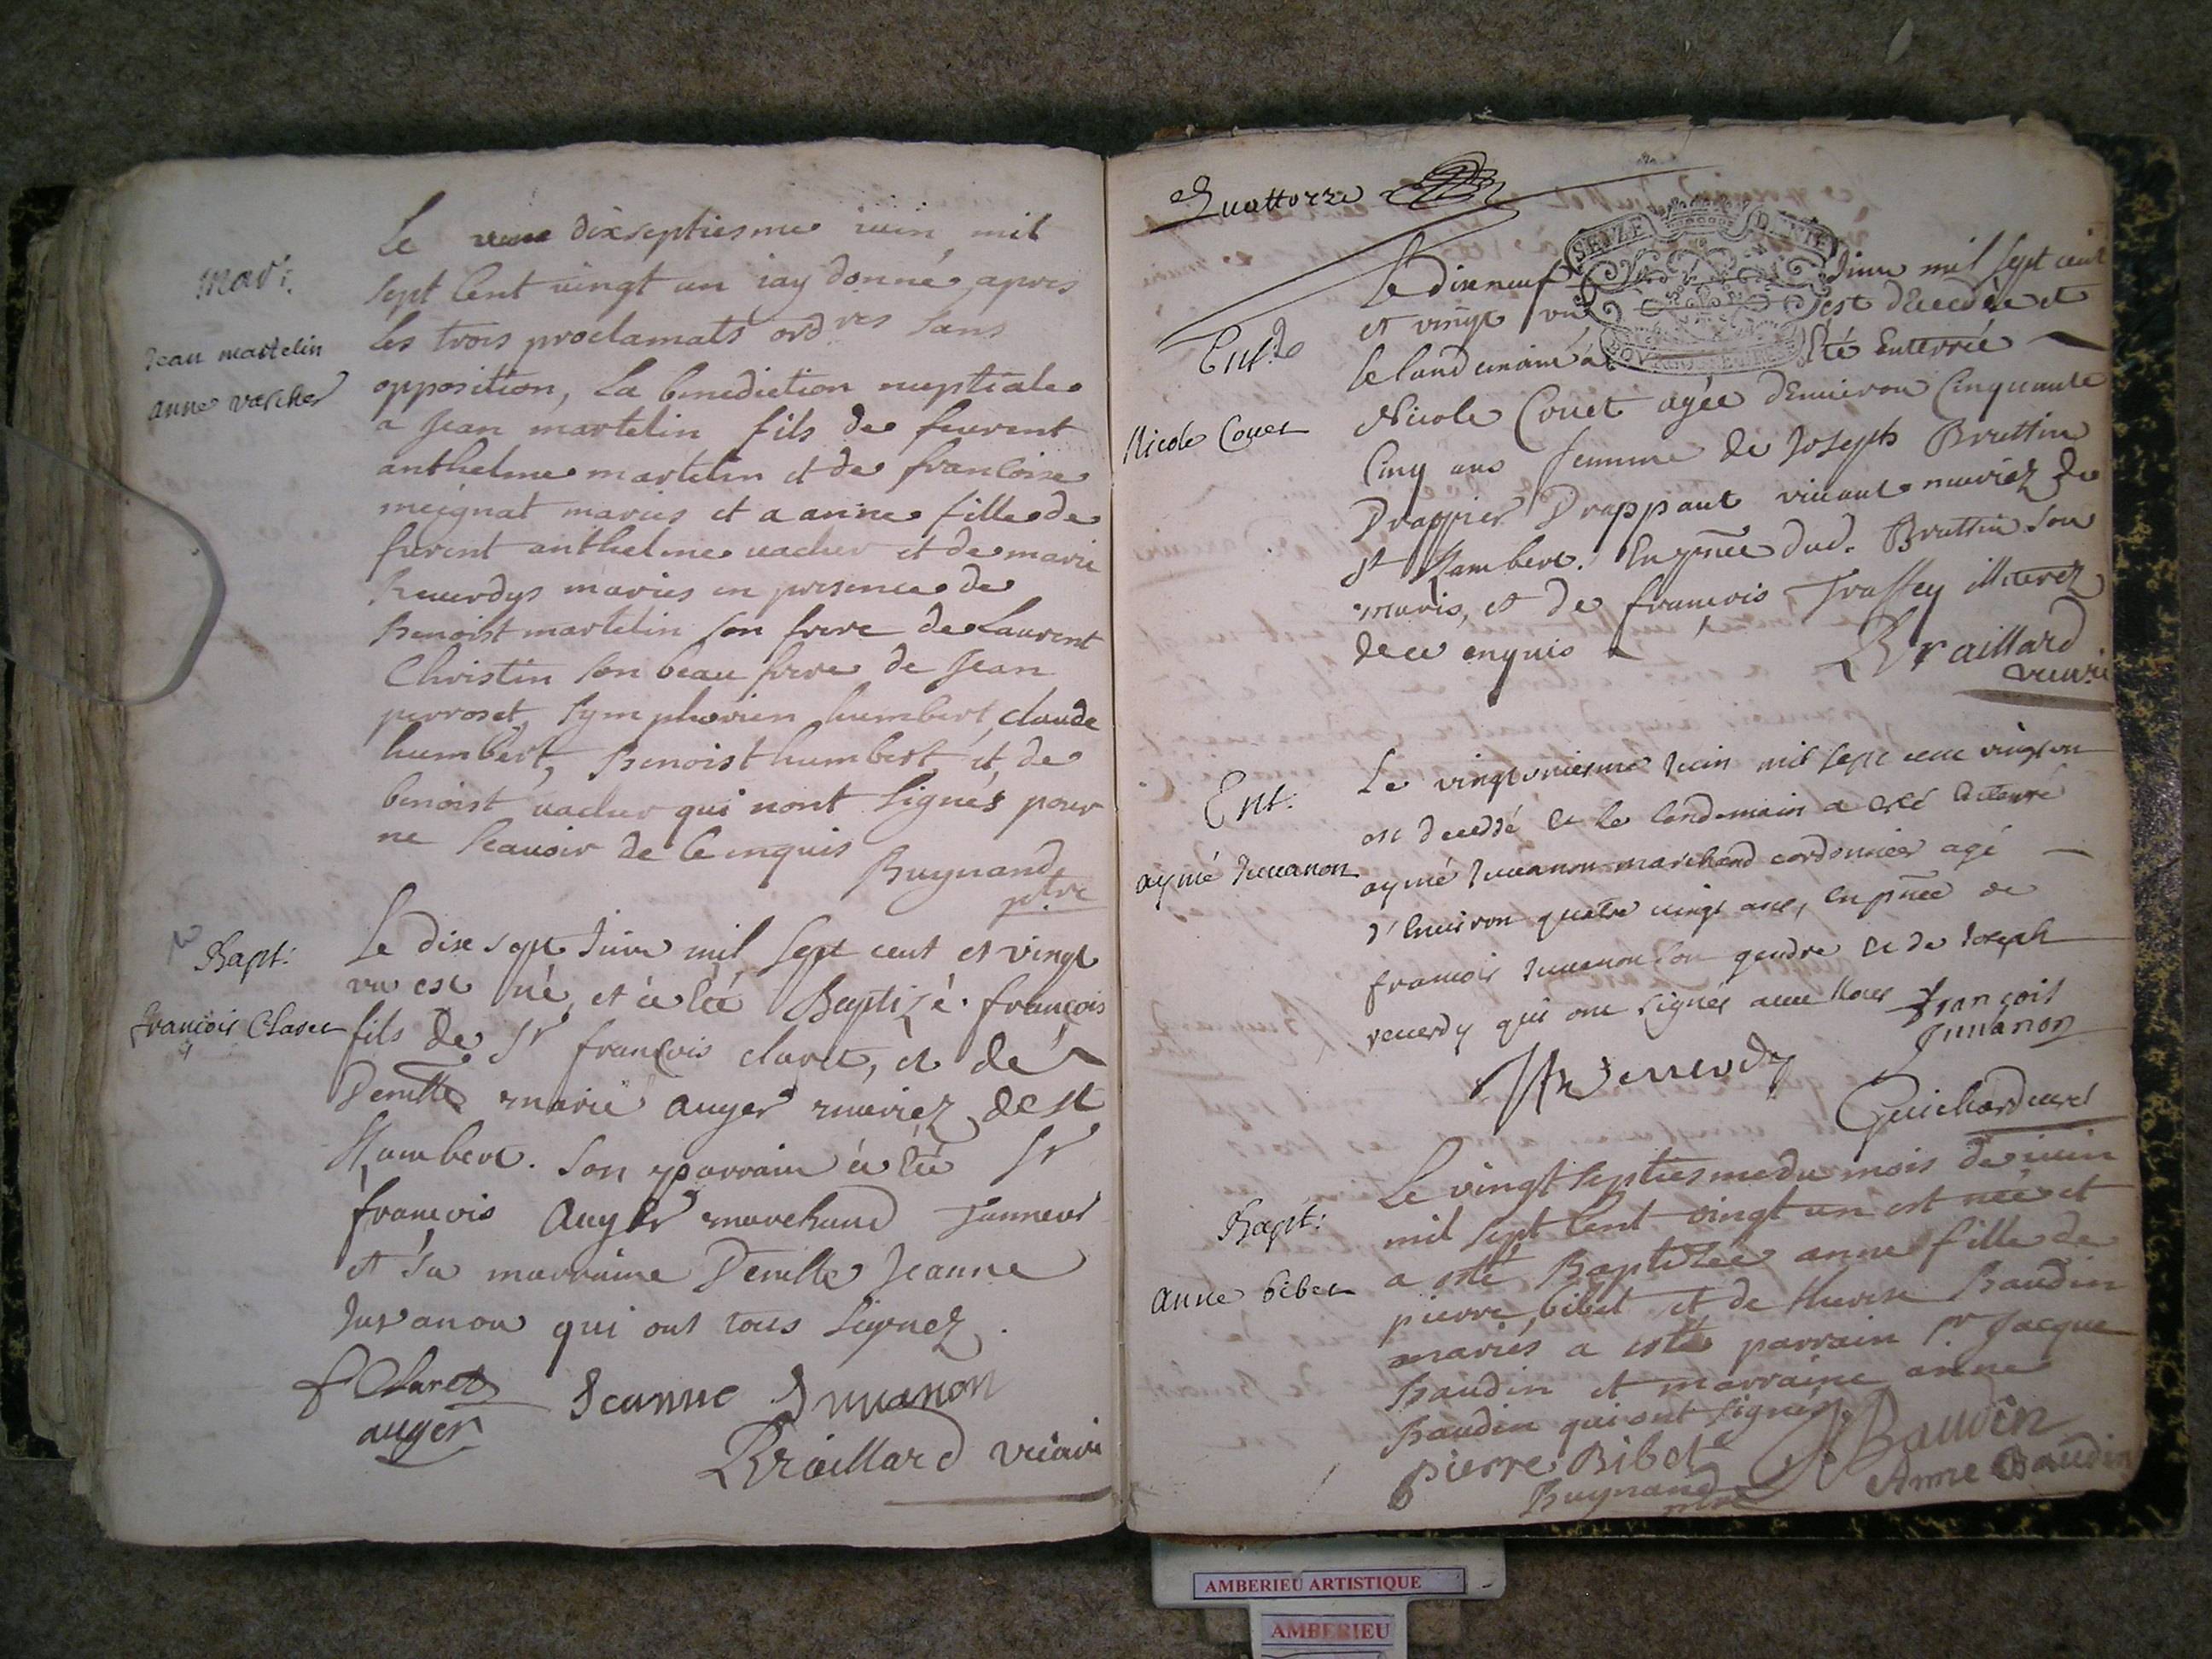 mar:
Jean martelin
anne vacher
Le dixseptiesme iuin mil
sept Cent uingt un iay donné apres
les trois proclamats ordres sans
opposition, La benediction nuptiale
a Jean martelin fils de feurent
anthelme martelin et de francoise
meignat maries et a anne fille de
furent anthelme uacher et de marie
Reuerdys maries en presence de
Benoist martelin son frere de Laurent
Christin son beau frere de Jean
perroset, Symphorien humbert, claude
humbert, Benoist humbert et de
benoist uacher qui nont signés pour
ne scauoir de ce enquis
Buynand
ptre
Bapt:
françois Claret
Le dix sept Juin mil sept cent et vingt
vn est né, et à été Baptizé. françois
fils de Sr françois claret, et de
Demlle marie auger mariez de st
Rambert. Son parrain à été Sr
françois Auger marchand Tanneur
et sa marraine Demlle Jeanne
Juvanon qui ont tous signez.
f Claret
auger
Jeanne Juuanon
Braillard vicaire
Quattorze
SEIZE DEN
BOVRG
Ent.
Nicole Couet
Le dixneuf Juin mil sept cent
et vingt vn est décedée et
le landemain à été Enterrée
Nicole Couet agée d'Enuiron Cinquante
Cinq ans femme de Joseph Bruttin
Drappier Drappant viuant mariez de
st Rambert. En pnce dud. Bruttin son
maris, et de françois Traffey illiterez
de ce enquis
Braillard
vicaire
Ent.
aymé Juuanon
Le vingtuniesme Juin mil sept cent vingt un
est decedé et le landemain a esté enterré
aymé Juuanon marchand cordonnier agé
d'Enuiron quatre uingt ans, en pnce de
francois Juuanon son gendre et de Joseph
reuerdy qui ont signés auec Nous
François
Juuanon
Reuerdy
Guichard curé
Bapt:
anne bibet
Le vingt septiesme du mois de iuin
mil sept Cent vingt un est née et
a esté Baptizée anne fille de
pierre bibet et de therese Baudin
mariés a esté parrain sr Jacque
Baudin et marraine anne
Baudin qui ont signés
pierre Bibet
J Baudin
Anne Baudin
Buynand
ptre
AMBERIEU ARTISTIQUE
AMBERIEU